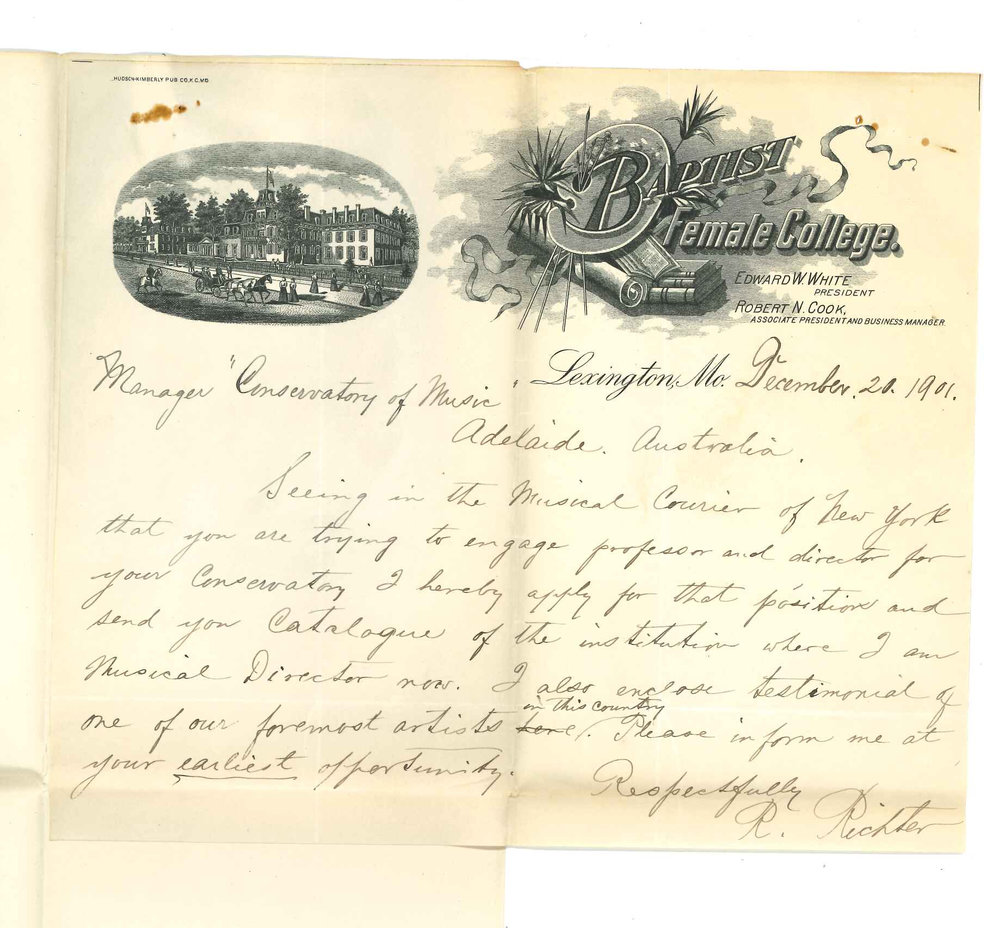 HUDSON-KIMBERLY PUB CO. K.C. MO
BAPTIST
Female College.
EDWARD W. WHITE
PRESIDENT
ROBERT N. COOK,
ASSOCIATE PRESIDENT AND BUSINESS MANAGER.
Lexington, Mo. December. 20. 1901.
Manager "Conservatory of Music"
Adelaide. Australia.
Seeing in the Musical Courier of New York
that you are trying to engage professor and director for
your Conservatory I hereby apply for that position and
send you Catalogue of the institution where I am
Musical Director now. I also enclose testimonial of
in this country
one of our foremost artists here. Please inform me at
your earliest opportunity.
Respectfully
R. Richter